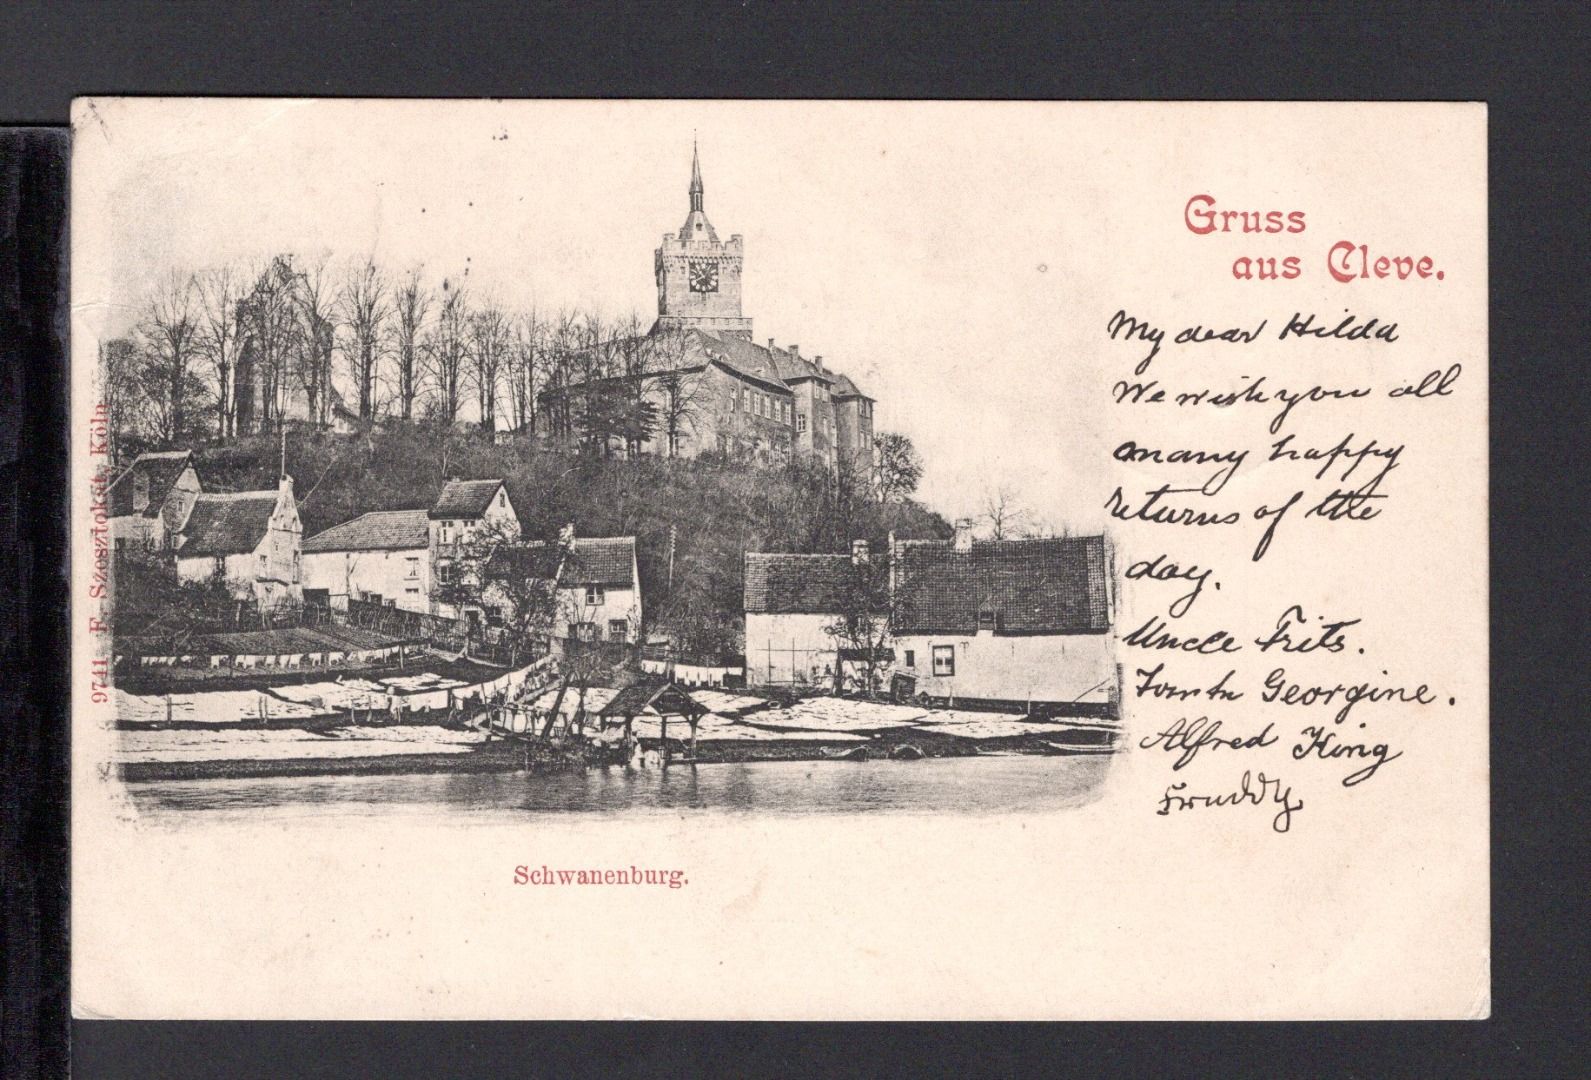 Gruss
aus Cleve.
My dear Hilda
We wish you all
many happy
returns of the
day.
Uncle Frits.
Tante Georgine.
Alfred King
Fruddy
Schwanenburg.
9741 F. Szesztokat, Köln